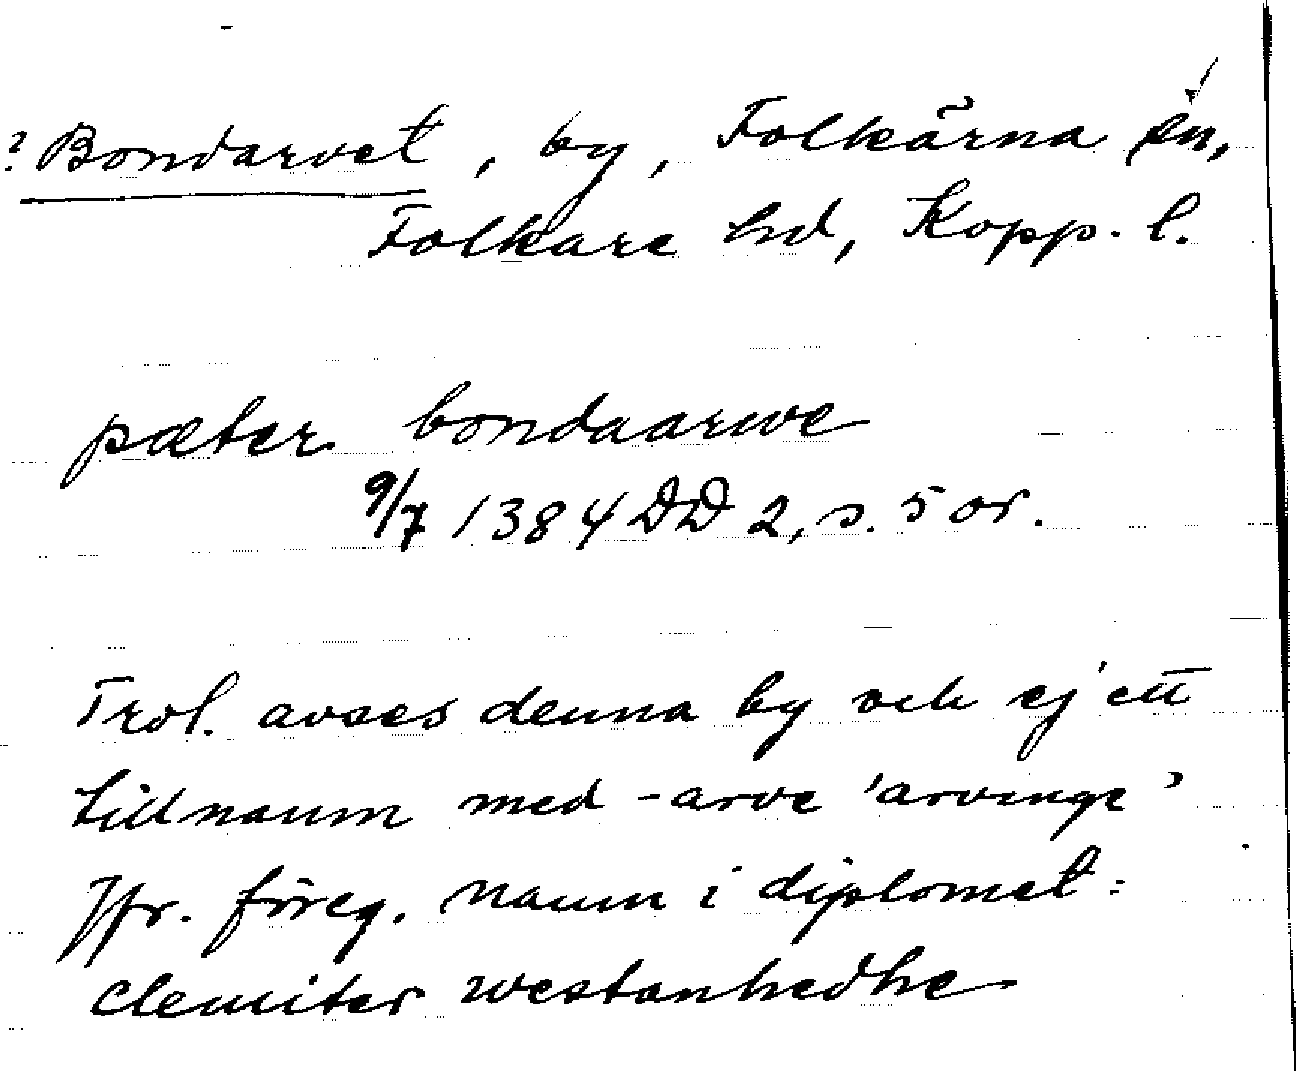 ? Bondarvet, by, Folkärna sn,
Folkare hd, Kopp. l.
pæter bondaarwe
9/7 1384 DD 2, s. 5 or.
Trol. avses denna by och ej ett
tillnamn med -arve 'arvinge'
Jfr. föreg. namn i diplomet:
clemiter westanhedhe